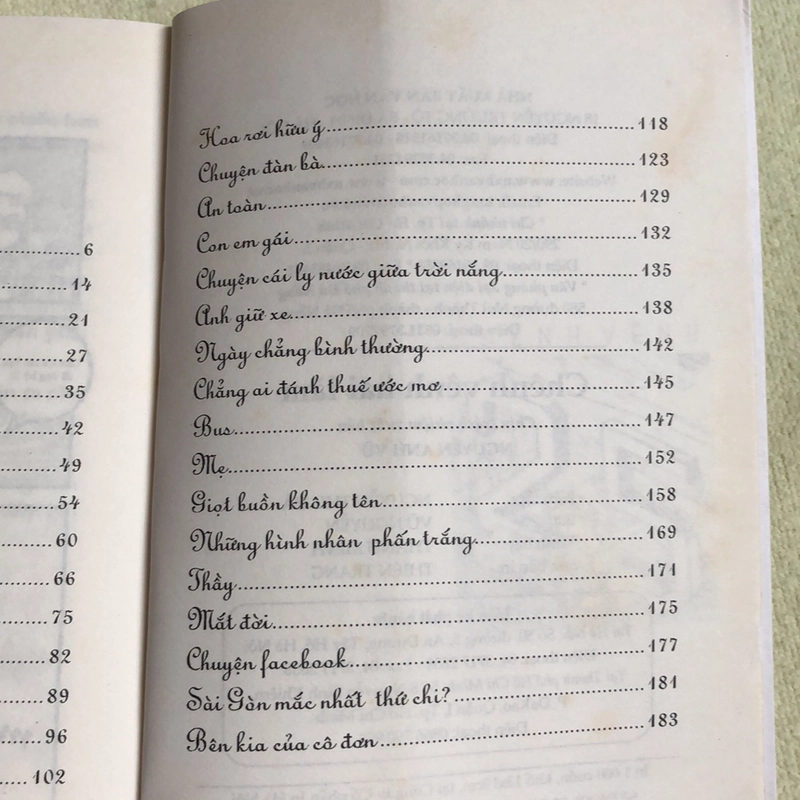 6
14
21
27
35
42
49
54
60
66
75
82
89
96
102
Hoa rơi hữu ý 118
Chuyện đàn bà 123
An toàn 129
Con em gái 132
Chuyện cái ly nước giữa trời nắng 135
Anh giữ xe 138
Ngày chẳng bình thường 142
Chẳng ai đánh thuế ước mơ 145
Bus 147
Mẹ 152
Giọt buồn không tên 158
Những hình nhân phấn trắng 169
Thầy 171
Mắt đời 175
Chuyện facebook 177
Sài Gòn mắc nhất thứ chi? 181
Bên kia của cô đơn 183